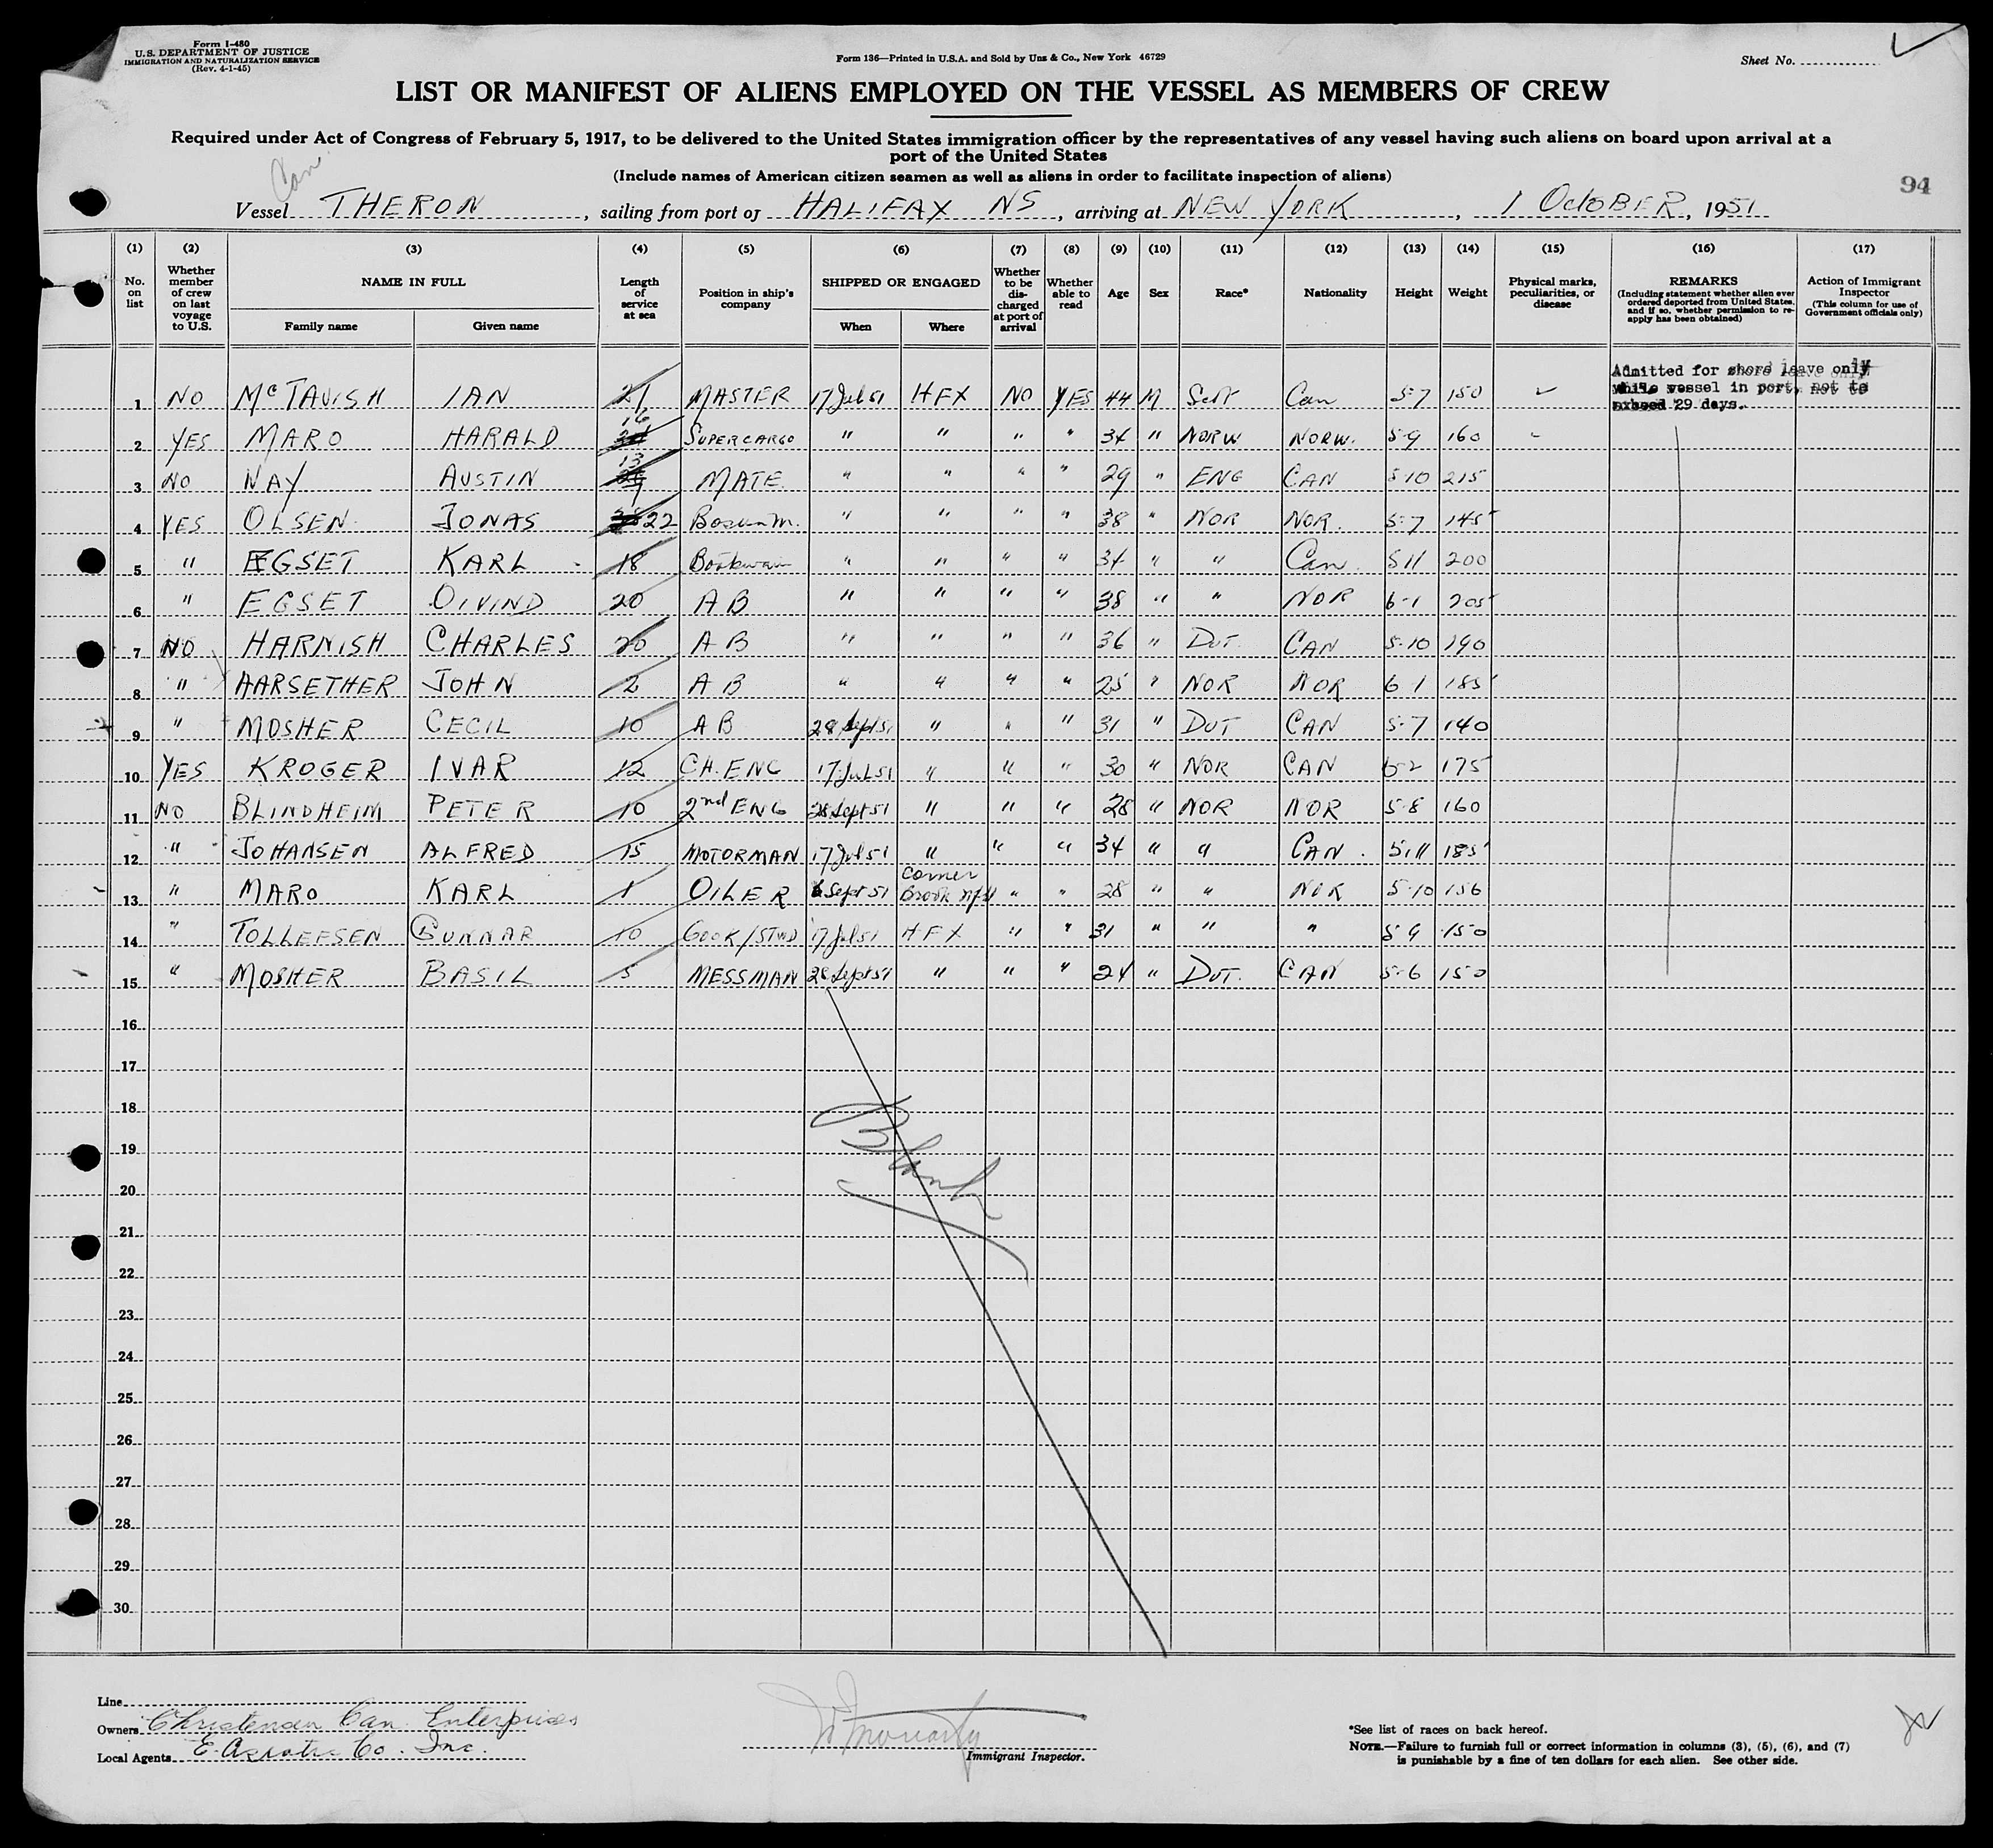 Form I-480
U.S. DEPARTMENT OF JUSTICE
IMMIGRATION AND NATURALIZATION SERVICE
(Rev. 4-1-45)
Form 136—Printed in U.S.A. and Sold by Unz & Co., New York 46729
Sheet No.
LIST OR MANIFEST OF ALIENS EMPLOYED ON THE VESSEL AS MEMBERS OF CREW
Required under Act of Congress of February 5, 1917, to be delivered to the United States immigration officer by the representatives of any vessel having such aliens on board upon arrival at a
port of the United States
(Include names of American citizen seamen as well as aliens in order to facilitate inspection of aliens)
94
Can
Vessel THERON, sailing from port of HALIFAX NS, arriving at NEW YORK, 1 OctOBER, 1951
(1) (2) (3) (4) (5) (6) (7) (8) (9) (10) (11) (12) (13) (14) (15) (16) (17)
No. on list
Whether member of crew on last voyage to U.S.
NAME IN FULL
Family name Given name
Length of service at sea
Position in ship's company
SHIPPED OR ENGAGED
When Where
Whether to be discharged at port of arrival
Whether able to read
Age Sex Race* Nationality Height Weight
Physical marks, peculiarities, or disease
REMARKS
(Including statement whether alien ever ordered deported from United States, and if so, whether permission to re-apply has been obtained)
Action of Immigrant Inspector
(This column for use of Government officials only)
Admitted for shore leave only
while vessel in port, not to
exceed 29 days.
1 NO McTAVISH IAN 21 MASTER 17 Jul 51 HFX NO YES 44 M Scot Can 5-7 150
2 YES MARO HARALD 16 SUPERCARGO " " " " 34 " NORW NORW. 5-9 160
3 NO NAY AUSTIN 13 MATE " " " " 29 " ENG CAN 5-10 215
4 YES OLSEN JONAS 22 " " " " 38 " NOR NOR. 5-7 145
5 " EGSET KARL 18 " " " " 34 " " Can 5 11 200
6 " EGSET OIVIND 20 AB " " " " 38 " " NOR 6-1 205
7 NO HARNISH CHARLES 20 AB " " " " 36 " DUT. CAN 5-10 190
8 " AARSETHER JOHN 2 AB " " " " 25 " NOR NOR 6-1 185
9 " MOSHER CECIL 10 AB 28 Sept 51 " " " 31 " DUT CAN 5-7 140
10 YES KROGER IVAR 12 CH. ENG 17 JUL 51 " " " 30 " NOR CAN 6-2 175
11 NO BLINDHEIM PETER 10 2nd ENG 28 Sept 51 " " " 28 " NOR NOR 5-8 160
12 " JOHANSEN ALFRED 15 MOTORMAN 17 Jul 51 " " " 34 " " CAN. 5-11 185
13 " MARO KARL 1 OILER 6 Sept 51 Corner Brook Nfld " " 28 " " NOR 5-10 156
14 " TOLLEFSEN GUNNAR 10 COOK/STWD 17 Jul 51 HFX " " 31 " " " 5 9 150
15 " MOSHER BASIL 5 MESSMAN 28 Sept 51 " " " 24 " DUT. CAN 5-6 150
16
17
18
19
20
21
22
23
24
25
26
27
28
29
30
Blank
Line
Owners Christensen Can. Enterprises
Local Agents E. Asiatic Co. Inc.
Immigrant Inspector.
*See list of races on back hereof.
NOTE.—Failure to furnish full or correct information in columns (3), (5), (6), and (7)
is punishable by a fine of ten dollars for each alien. See other side.